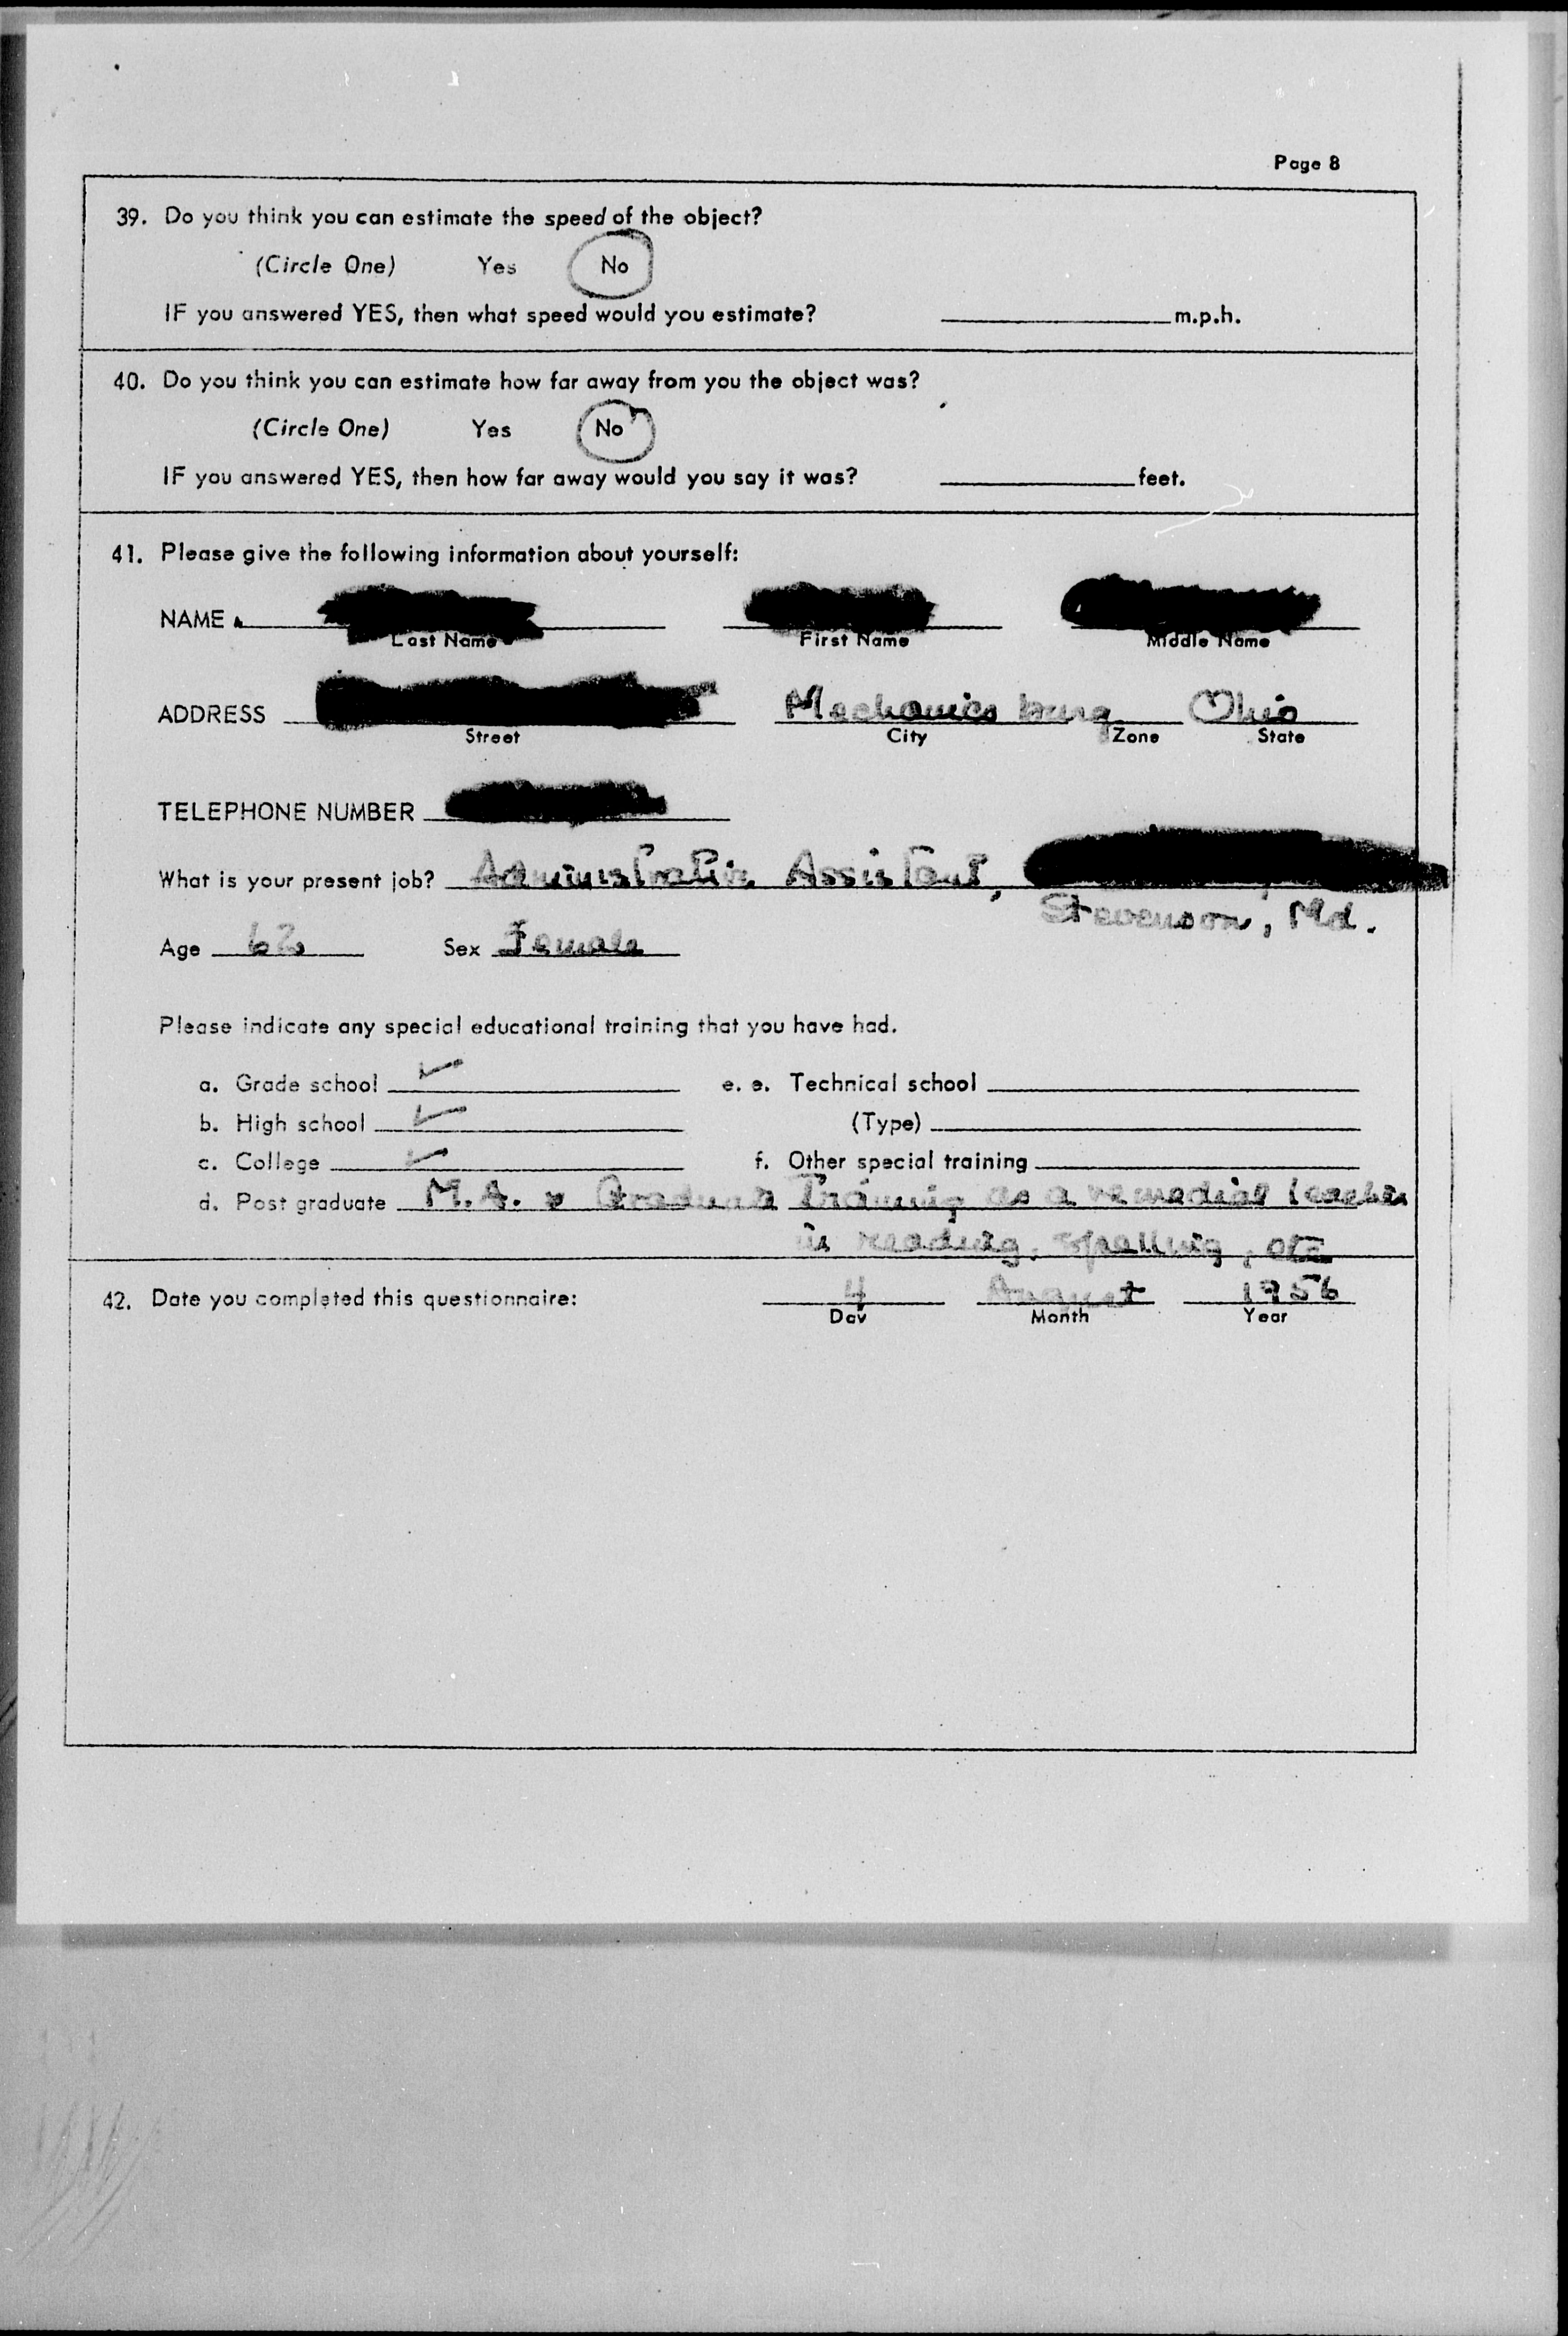 Page 8
39. Do you think you can estimate the speed of the object?
(Circle One) Yes No
IF you answered YES, then what speed would you estimate? m.p.h.
40. Do you think you can estimate how far away from you the object was?
(Circle One) Yes No
IF you answered YES, then how far away would you say it was? feet.
41. Please give the following information about yourself:
NAME
Last Name First Name Middle Name
ADDRESS Mechanicsburg Ohio
Street City Zone State
TELEPHONE NUMBER
What is your present job? Administrative Assistant,
Stevenson, Md.
Age 62 Sex Female
Please indicate any special educational training that you have had.
a. Grade school ✓ e. e. Technical school
b. High school ✓ (Type)
c. College ✓ f. Other special training
d. Post graduate M.A. & Graduate Training as a remedial teacher
in reading, spelling, etc
42. Date you completed this questionnaire: 4 August 1956
Day Month Year